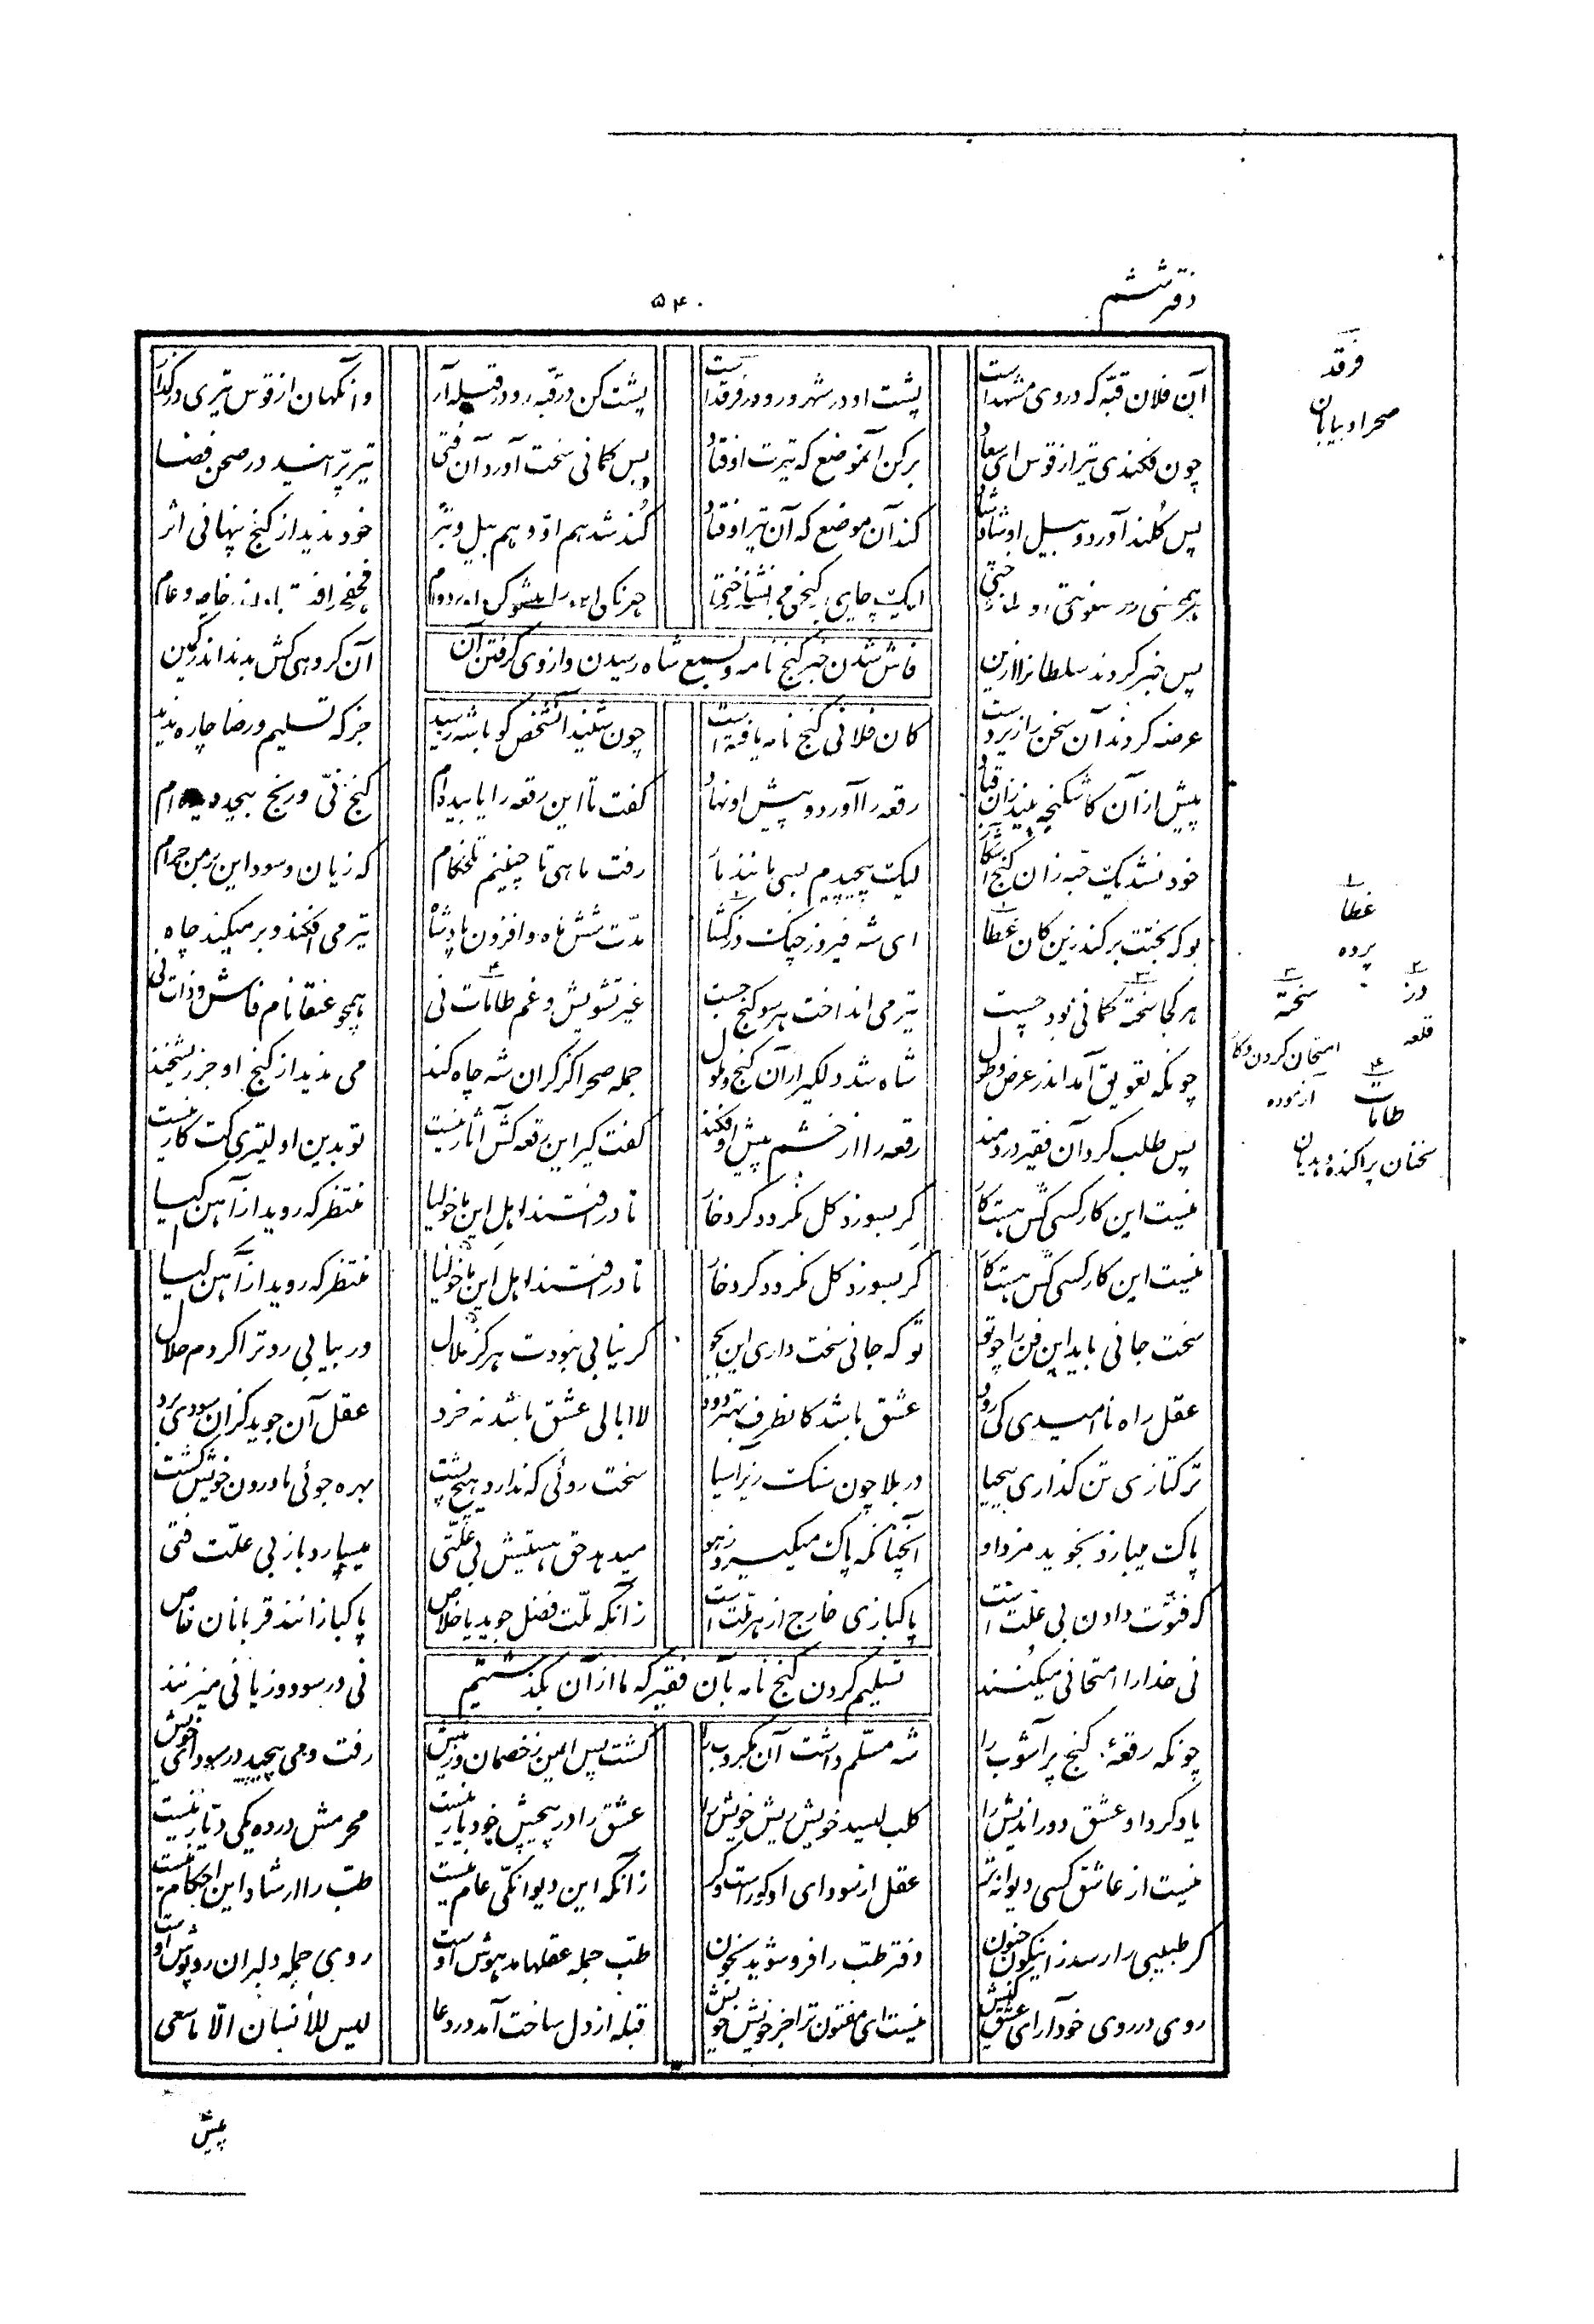 دفتر ششم
۵۴۰
آن فلان قبّه که در وی مشهد است پشت او در شهر و رو در فرقد است پشت کن در قبّه رو در قبله آر وانگهان از قوس تیری در گذار
چون فکندی تیر از قوس ای سعاد بر کن آنموضع که تیرت اوفتاد پس کمانی سخت آورد آن فتی تیر پرّانید در صحن فضا
پس کلند آورد و بیل او شاد شاد کند آن موضع که آن تیر اوفتاد کند شد هم او و هم بیل و تبر خود ندید از گنج پنهانی اثر
لیک جای گنج می نشناختی خاص و عام
پس خبر کردند سلطانرا ازین آن گروهی کش بدند اندر کمین
فاش شدن خبر گنج نامه و بسمع شاه رسیدن و از وی گرفتن آن
عرضه کردند آن سخن را زیر دست کان فلانی گنج نامه یافته است چون شنید آنشخص کو با شه رسید جز که تسلیم و رضا چاره ندید
پیش از آن کاشکنجه بیند زان قباد رقعه را آورد و پیش او نهاد گفت تا این رقعه را یابیده‌ام گنج نی و رنج بیحد دیده‌ام
خود نشد یک حبه زان گنج آشکار لیک پیچیدم بسی مانند مار رفت ماهی تا چنینم تلخکام که زیان و سود این بر من حرام
بو که بختت بر کند زین کان غطا ای شه فیروز جنگ دز گشا مدّت شش ماه و افزون پادشاه تیر می افکند و بر میکند چاه
هر کجا سخته کمانی بود چست تیر می انداخت هر سو گنج جست غیر تشویش و غم طامات نی همچو عنقا نام فاش و ذات نی
چونکه تعویق آمد اندر عرض و طول شاه شد دلگیر از آن گنج و ملول جمله صحرا گز گز آن شه چاه کند می ندید از گنج او جز ریشخند
پس طلب کرد آن فقیر دردمند رقعه را از خشم پیش او فکند گفت گیر این رقعه کش آثار نیست تو بدین اولیتری کت کار نیست
نیست این کار کسی کش هست کار گر بسوزد گل نگردد گرد خار نادر افتند اهل این ماخولیا منتظر که روید از آهن گیا
نیست این کار کسی کش هست کار گر بسوزد گل نگردد گرد خار نادر افتند اهل این ماخولیا منتظر که روید از آهن گیا
سخت جانی باید این فن را چو تو تو که جانی سخت داری این بجو گر نیابی نبودت هرگز ملال ور بیابی رو ترا کردم حلال
عقل راه ناامیدی کی رود عشق باشد کانطرف بر سر دود لاابالی عشق باشد نه خرد عقل آن جوید کزان سودی برد
ترکتازی تن گدازی بیحیا در بلا چون سنگ زیر آسیا سخت روئی که ندارد هیچ پشت بهره جوئی را درون خویش کشت
پاک میبازد نجوید مزد او آنچنانکه پاک میگیرد ز هو میدهد حق هستیش بی علّتی میسپارد باز بی علّت فتی
که فتوّت دادن بی علّت است پاکبازی خارج از هر ملّت است زانکه ملّت فضل جوید یا خلاص پاکبازانند قربانان خاص
نی خدا را امتحانی میکنند نی در سود و زیانی میزنند
تسلیم کردن گنج نامه بآن فقیر که ما از آن بگذشتیم
چونکه رقعهٔ گنج پر آشوب را شه مسلّم داشت آن مکروب را گشت پس ایمن ز خصمان و ز نیش رفت و می پیچید در سودای خویش
یار کرد او عشق دور اندیش را کلب لیسد خویش ریش خویش را عشق را در پیچش خود یار نیست محرمش در ده یکی دیّار نیست
نیست از عاشق کسی دیوانه تر عقل از سودای او کور است و کر زانکه این دیوانگی عام نیست طبّ را ارشاد این احکام نیست
گر طبیبی را رسد زینگون جنون دفتر طبّ را فرو شوید بخون طبّ جمله عقلها مدهوش اوست روی جمله دلبران روپوش اوست
روی در روی خود آر ای عشق کیش نیست ای مفتون ترا جز خویش خویش قبله از دل ساخت آمد در دعا لیس للأنسان الّا ما سعی
پیش
فرقد
صحرا و بیابان
۱
غطا
پرده
۲
دز
قلعه
۳
سخته
امتحان کردن و
آزموده
۴
طامات
سخنان پراکنده و هذیان